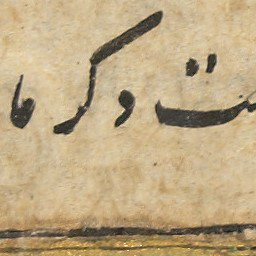 ست و کر ما